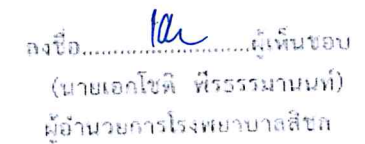 ลงชื่อ......................ผู้เห็นชอบ
(นายเอกโชติ พีรธรรมานนท์)
ผู้อำนวยการโรงพยาบาลสิชล